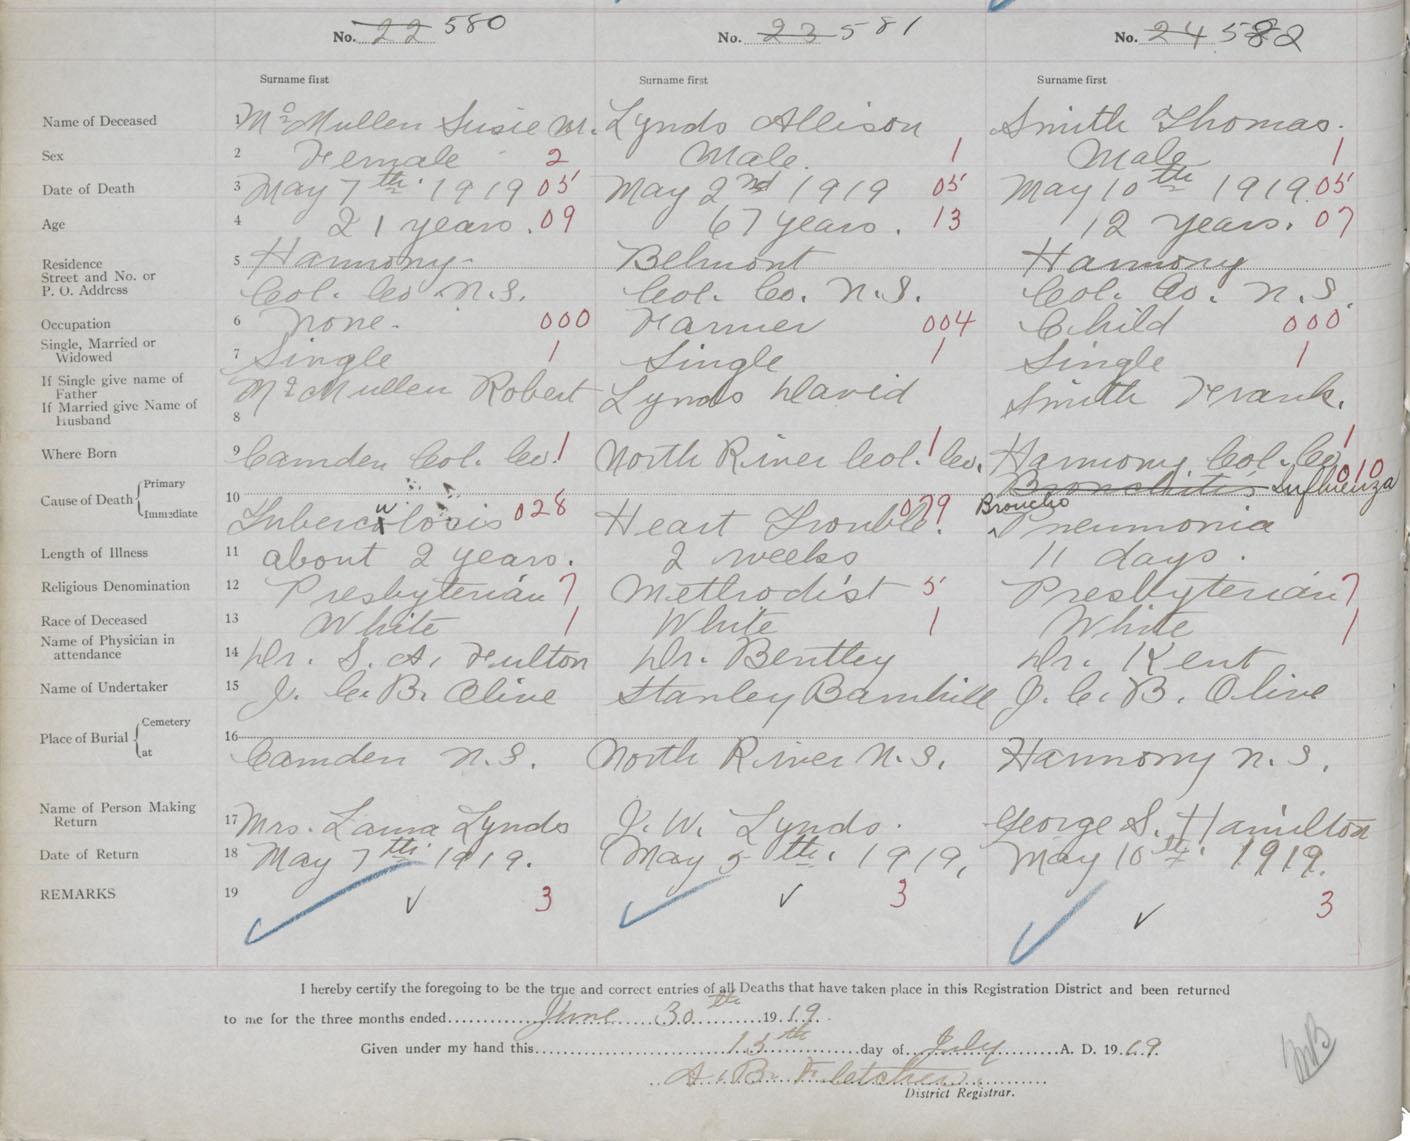 No. 22 580 No. 23 581 No. 24 582
Surname first Surname first Surname first
Name of Deceased 1 McMullen Susie M. Lynds Allison Smith Thomas.
Sex 2 Female 2 Male. 1 Male 1
Date of Death 3 May 7th. 1919 05 May 2nd 1919 05 May 10th 1919. 05
Age 4 21 years. 09 67 years. 13 12 years. 07
Residence 5 Harmony- Belmont Harmony
Street and No. or
P. O. Address Col. Co. N.S. Col. Co. N.S. Col. Co. N.S.
Occupation 6 None. 000 Farmer 004 Child 000
Single, Married or
Widowed 7 Single 1 Single 1 Single 1
If Single give name of
Father McMullen Robert Lynds David Smith Frank.
If Married give Name of
Husband 8
Where Born 9 Camden Col. Co. 1 North River Col. Co. 1 Harmony Col. Co 1
Cause of Death Primary Bronchitis Influenza 010
Immediate 10 Tuberculosis 028 Heart Trouble. 079 Broncho Pneumonia
Length of Illness 11 about 2 years. 2 weeks 11 days.
Religious Denomination 12 Presbyterian 7 Methodist 5 Presbyterian 7
Race of Deceased 13 White 1 White 1 White 1
Name of Physician in
attendance 14 Dr. S. A. Fulton Dr. Bentley Dr. Kent
Name of Undertaker 15 J. C. B. Olive Stanley Barnhill J. C. B. Olive
Place of Burial Cemetery 16
at Camden N.S. North River N.S. Harmony N.S.
Name of Person Making
Return 17 Mrs. Laura Lynds J. W. Lynds. George S. Hamilton
Date of Return 18 May 7th. 1919. May 5th. 1919, May 10th. 1919.
REMARKS 19 3 3 3
I hereby certify the foregoing to be the true and correct entries of all Deaths that have taken place in this Registration District and been returned
to me for the three months ended June 30th 1919.
Given under my hand this 15th day of July A. D. 1919.
A. B. Fletcher.
District Registrar.